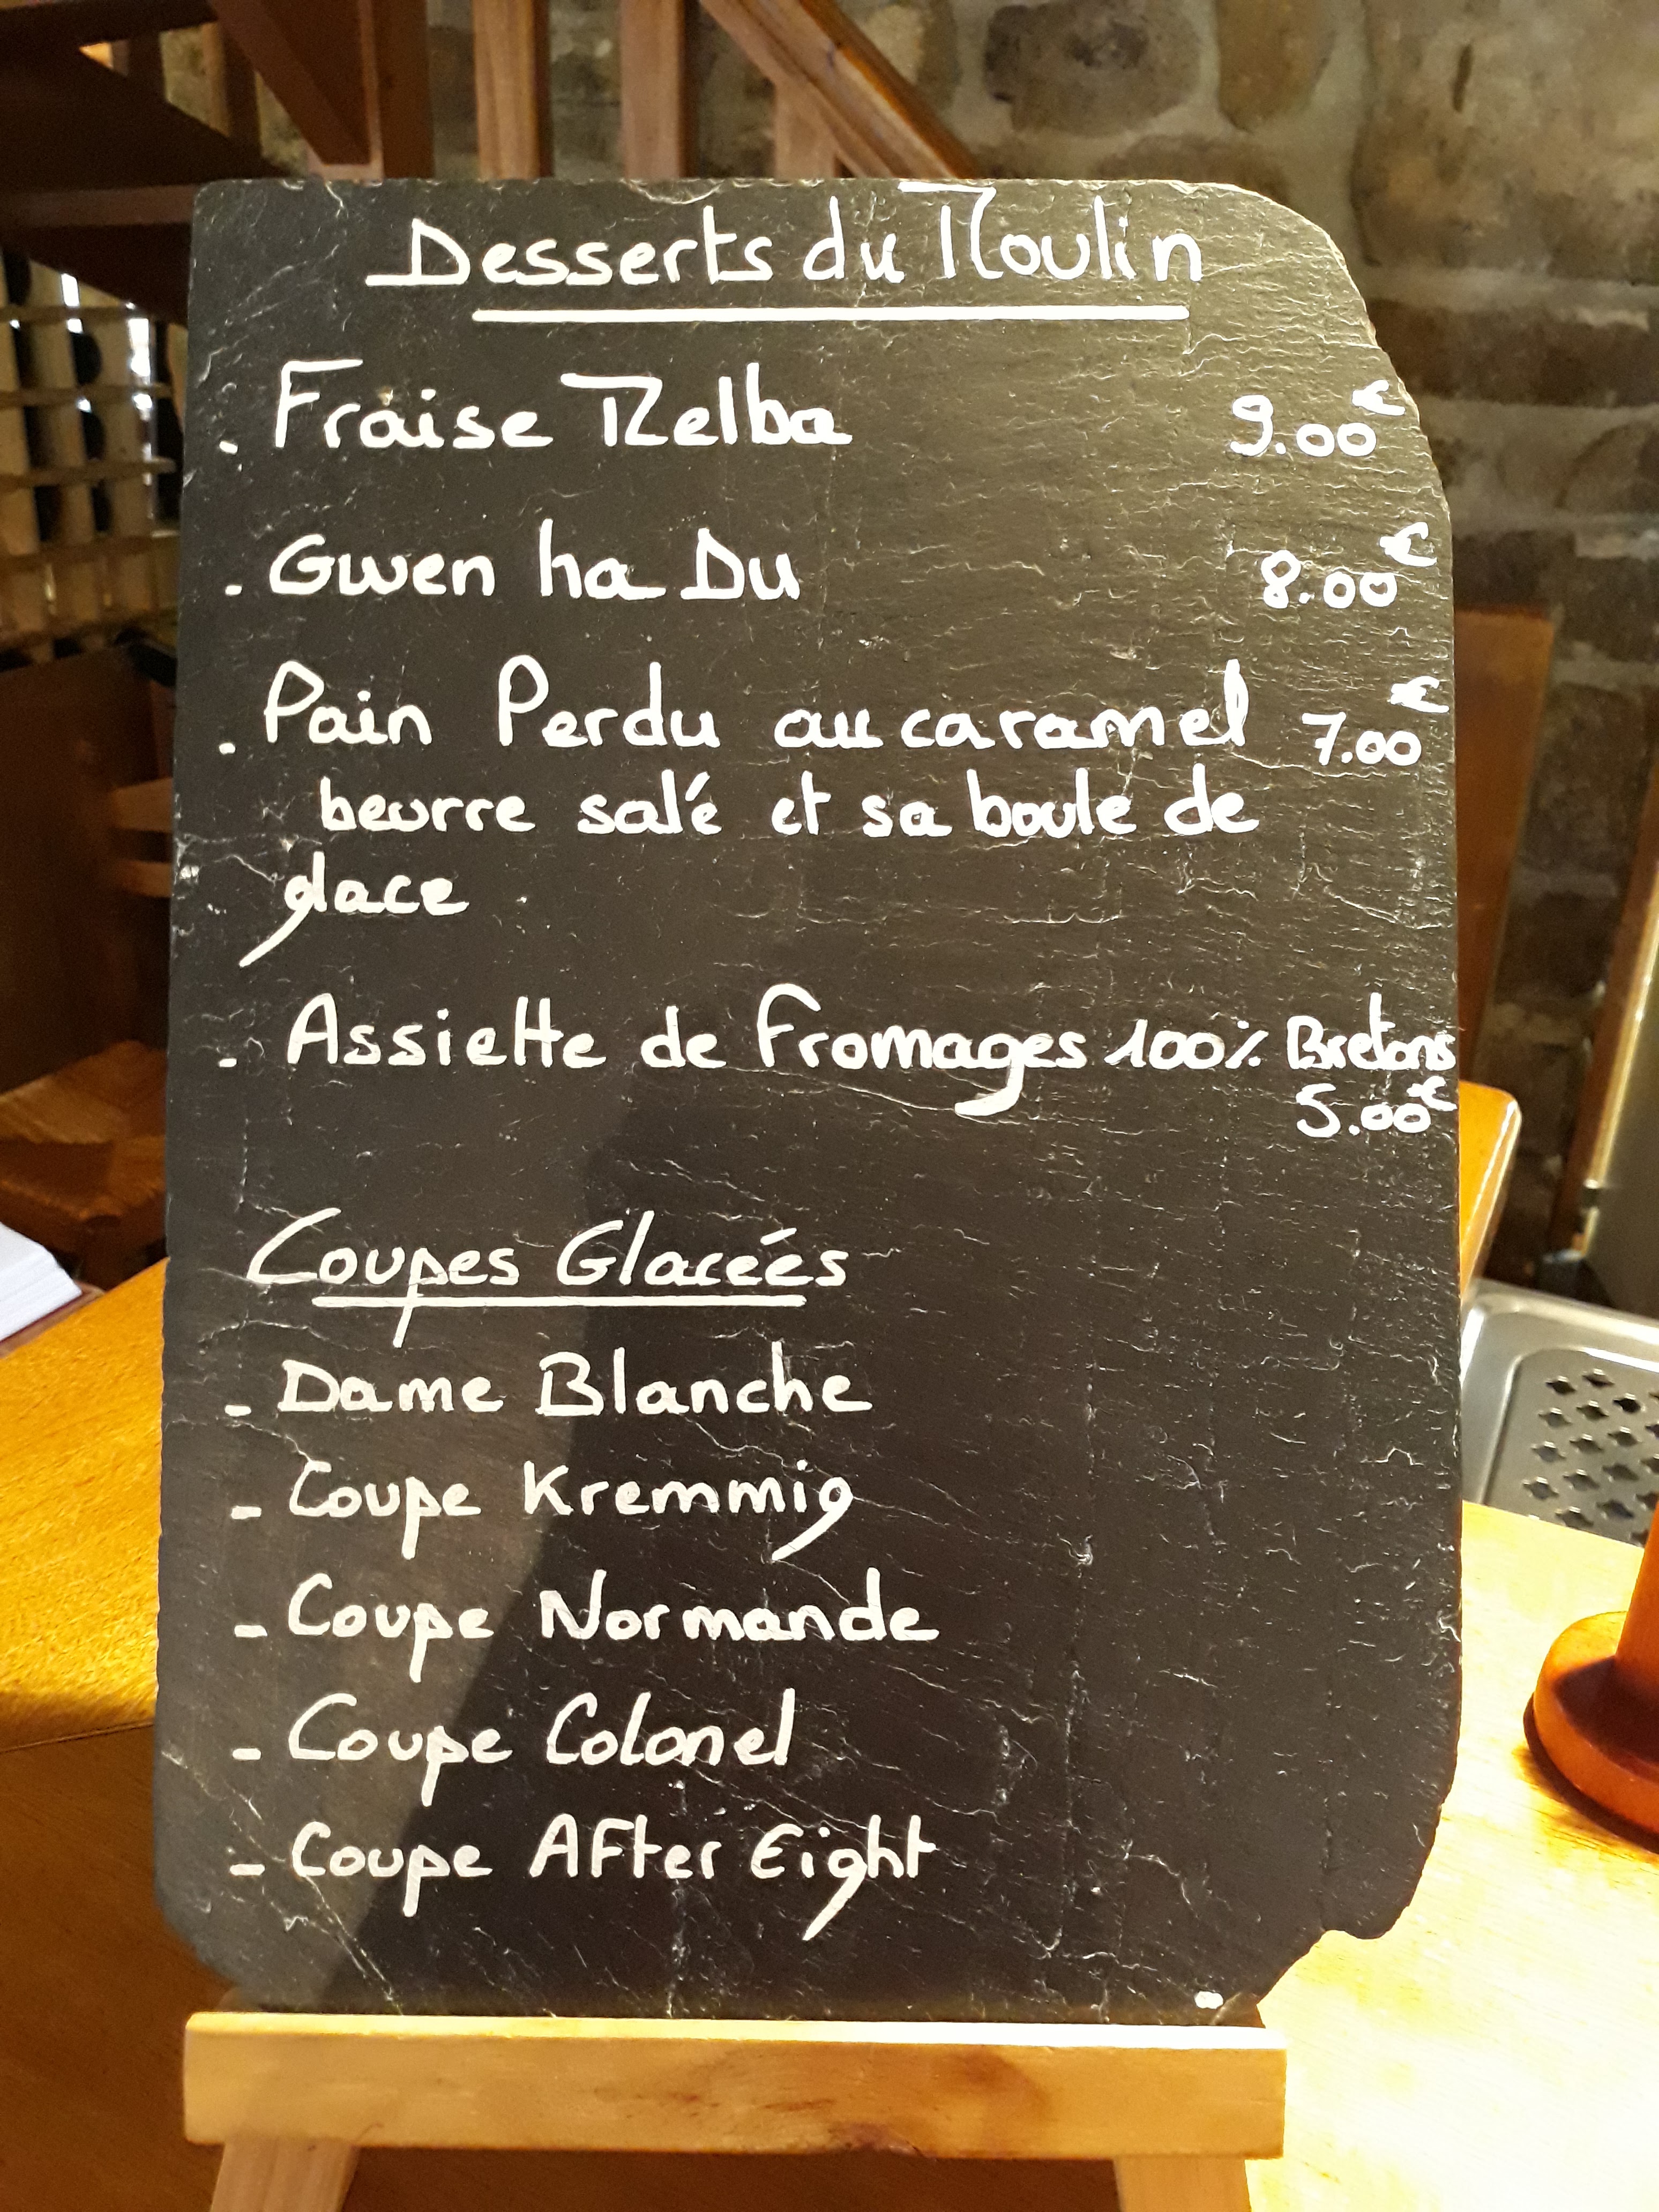 Desserts du Moulin
. Fraise Melba 9.00€
. Gwen ha Du 8.00€
. Pain Perdu au caramel 7.00€
beurre salé et sa boule de
glace
. Assiette de fromages 100% Bretons
5.00€
Coupes Glacéés
- Dame Blanche
- Coupe Kremmig
- Coupe Normande
- Coupe Colonel
- Coupe After Eight